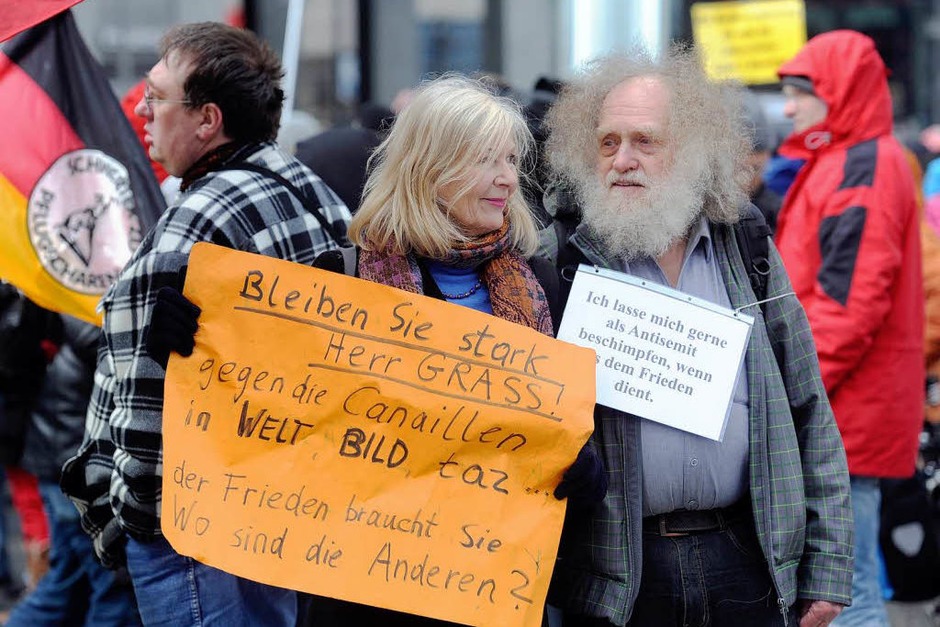 Bleiben Sie stark
Herr GRASS!
gegen die Canaillen
in WELT BILD taz...
der Frieden braucht Sie
Wo sind die Anderen?
Ich lasse mich gerne
als Antisemit
beschimpfen, wenn
dem Frieden
dient.
SCHWERTER
PFLUGSCHAREN